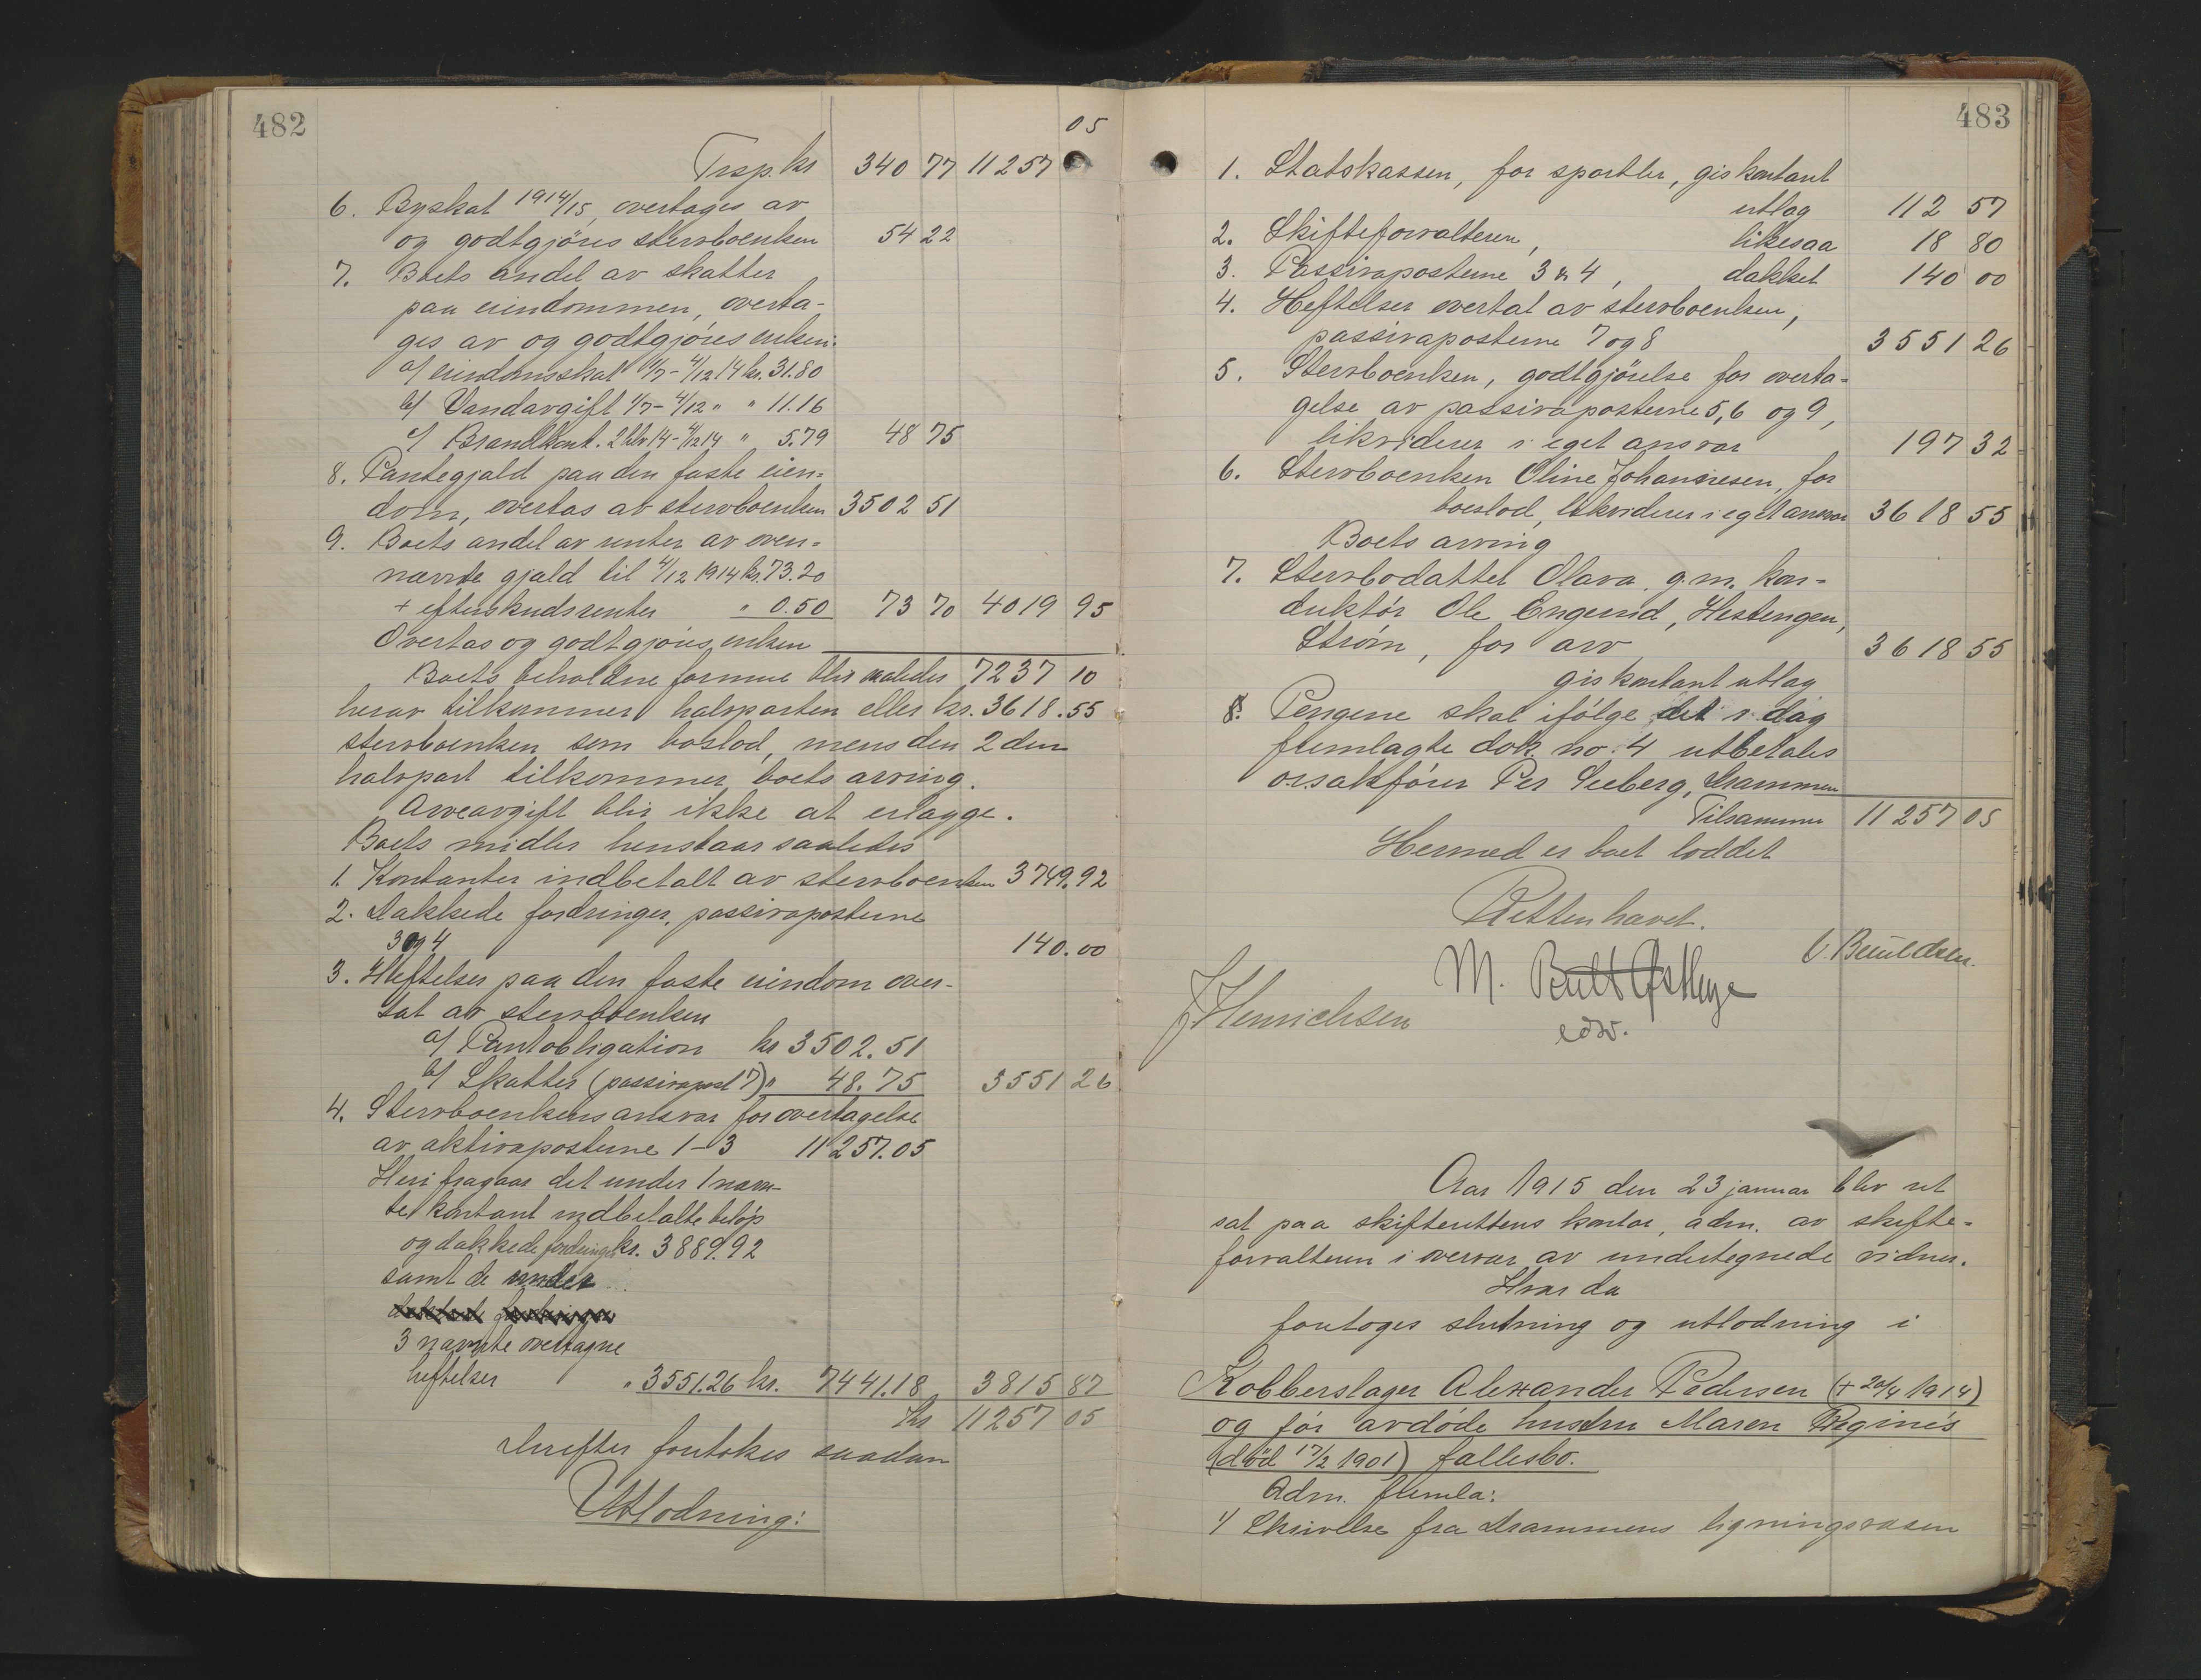 482
05
Trsp. kr 340 77 11257
6. Byskat 1914/15, overtages av
og godtgjöres stervboenken 54 22
7. Boets andel av skatter
paa eiendommen, overta-
ges av og godtgjöres enken.
a/ eiendomsskat 1/7-4/12 14 kr. 31.80
b/ Vandavgift 1/7-4/12 " " 11.16
c/ Brandkont. 2 hlv 14-4/12 14 " 5.79 48 75
8. Pantegjæld paa den faste eien=
dom, overtas av stervboenken 3502 51
9. Boets andel av renter av oven=
nævnte gjæld til 4/12 1914 kr. 73.20
+ efterskudsrenter " 0.50 73 70 4019 95
Overtas og godtgjöres enken
Boets beholdne formue blir saaledes 7237 10
herav tilkommer halvparten eller kr. 3618.55
stervboenken som boslod, mens den 2den
halvpart tilkommer boets arving.
Arveavgift blir ikke at erlægge.
Boets midler henstaar saaledes
1. Kontanter indbetalt av stervboenken 3749.92
2. Dækkede fordringer, passivaposterne
3 og 4 140.00
3. Heftelser paa den faste eiendom over-
tat av stervboenken
a/ Pantobligation kr 3502.51
b/ Skatter (passivapost 7) " 48.75 3551 26
4. Stervboenkens ansvar for overtagelse
av aktivaposterne 1-3 11257.05
Heri fragaar det under 1 nævn-
te kontant indbetalte beløp
og dækkede fordringer kr. 3889.92
samt de under
3 nævnte overtagne
heftelser " 3551.26 kr. 7441.18 3815 87
Kr 11257 05
Derefter foretokes saadan
Utlodning:
483
1. Statskassen, for sportler, gis kontant
utlæg 112 57
2. Skifteforvalteren, likesaa 18 80
3. Passivaposterne 3 & 4, dækket 140 00
4. Heftelser overtat av stervboenken,
passivaposterne 7 og 8 3551 26
5. Stervboenken, godtgjörelse for overta-
gelse av passivaposterne 5, 6 og 9,
likviderer i eget ansvar 197 32
6. Stervboenken Oline Johannesen, for
boeslod, likviderer i eget ansvar 3618 55
Boets arving
7. Stervbodatter Olava g.m. kon-
duktör Ole Engerud, Hestengen,
Strøm, for arv 3618 55
gis kontant utlæg
8. Pengene skal ifölge det i dag
fremlagte dok no. 4 utbetales
o.r.sakförer Per Seeberg, Drammen
Tilsammen 11257 05
Hermed er boet loddet
Retten hævet.
M. Bull Østbye
edv.
J Henrichsen
Aar 1915 den 23 januar blev ret
sat paa skifterettens kontor, adm. av skifte-
forvalteren i overvær av undertegnede vidner.
Hvor da
foretoges slutning og utlodning i
Kobberslager Alexander Pedersen (+ 20/4 1914)
og för avdöde hustru Maren Regine's
(död 17/2 1901) fællesbo.
Adm. fremla:
1/ Skrivelse fra Drammens ligningsvæsen